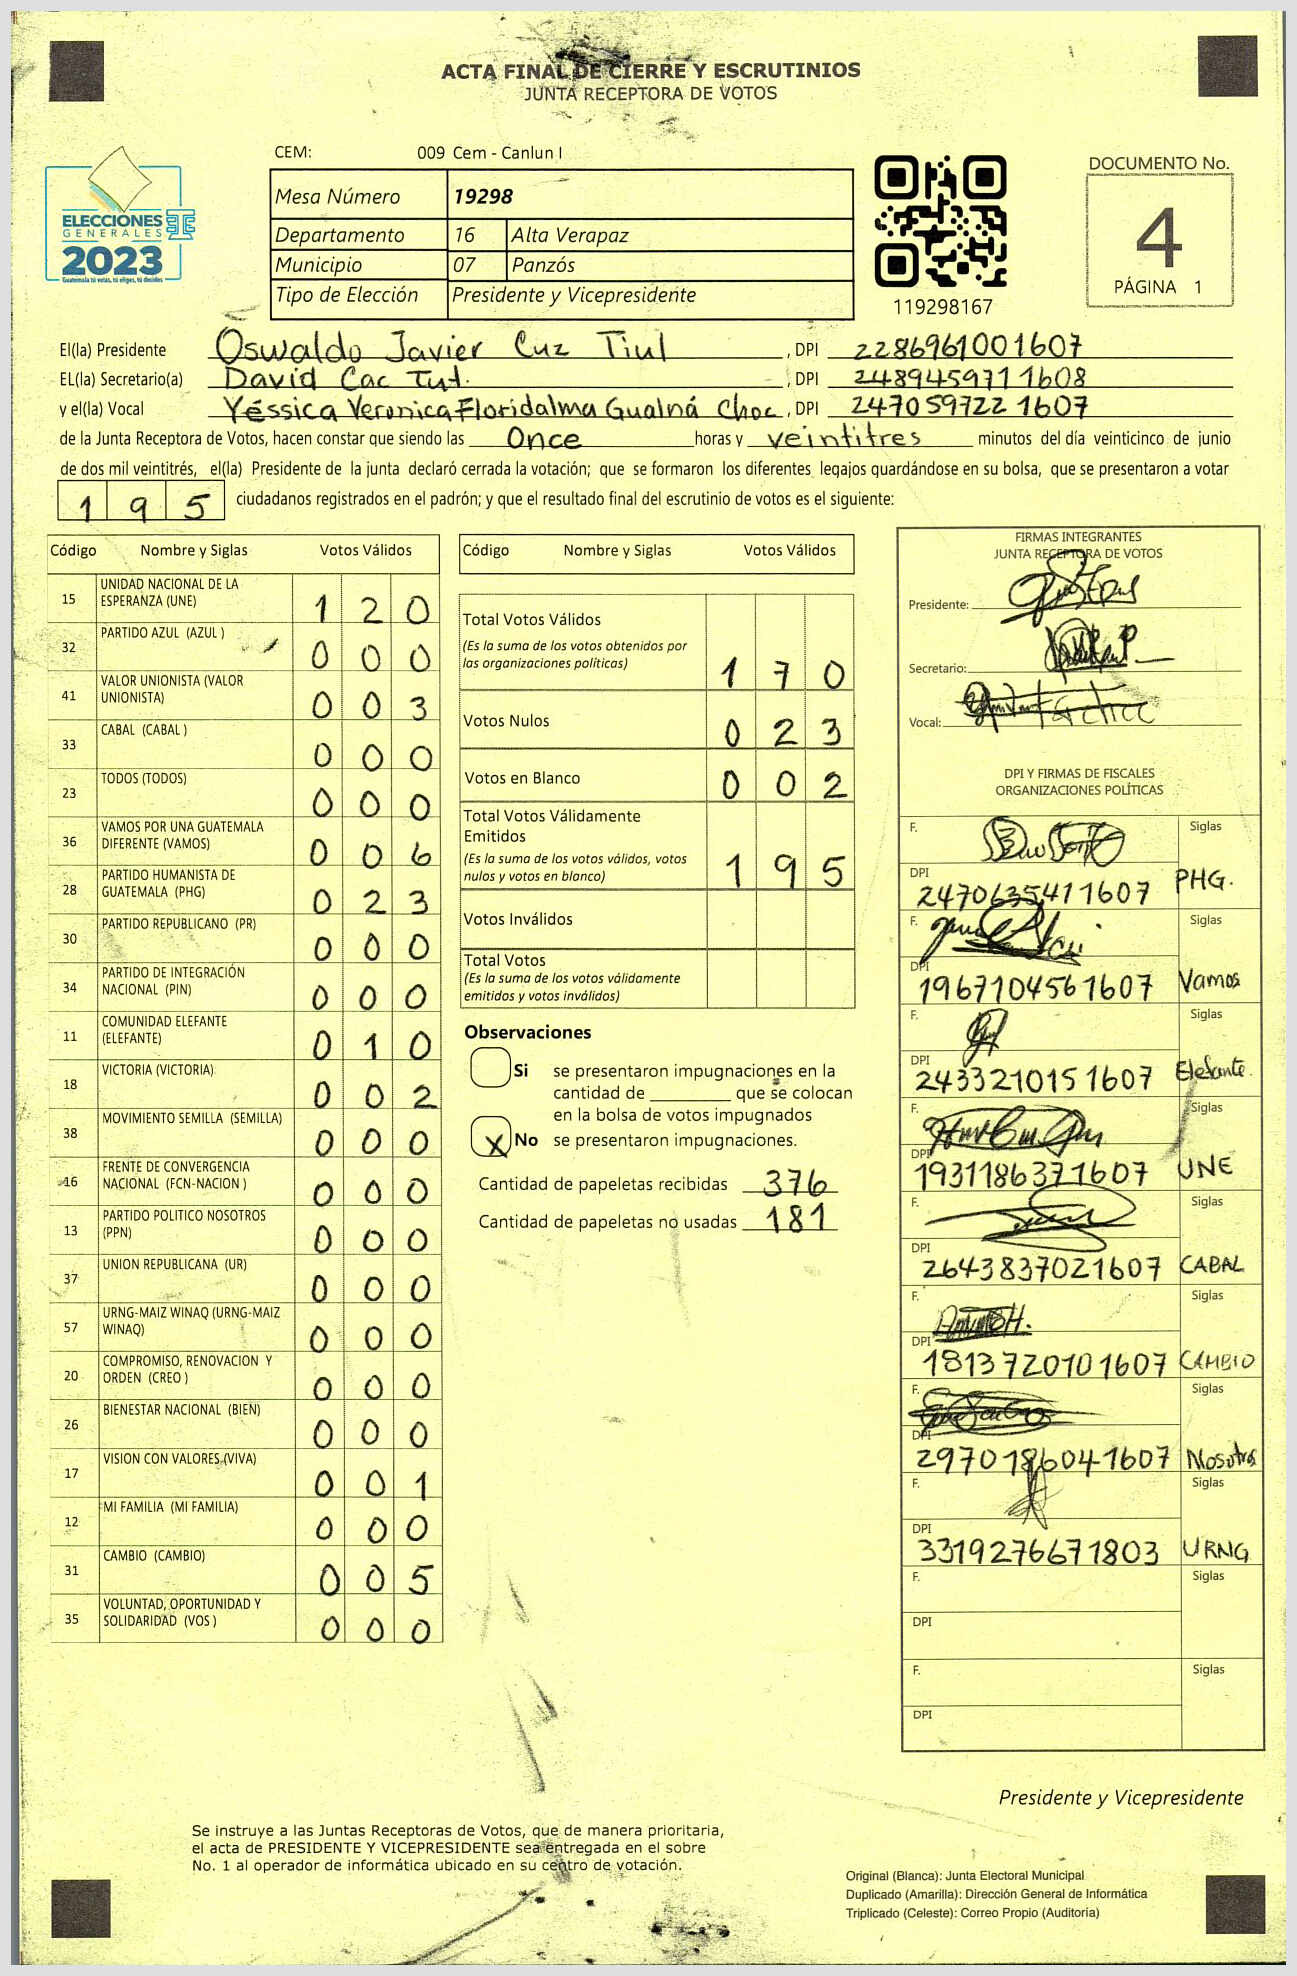 ACTA FINAL DE CIERRE Y ESCRUTINIOS
JUNTA RECEPTORA DE VOTOS
CEM: 009 Cem - Canlun I
ELECCIONES
GENERALES
2023
Guatemala tú votas, tú eliges, tú decides
Mesa Número 19298
Departamento 16 Alta Verapaz
Municipio 07 Panzós
Tipo de Elección Presidente y Vicepresidente
119298167
DOCUMENTO No.
4
PÁGINA 1
El(la) Presidente Oswaldo Javier Cuz Tiul, DPI 2286961001607
EL(la) Secretario(a) David Cac Tut., DPI 2489459711608
y el(la) Vocal Yéssica Veronica Floridalma Gualná Choc, DPI 2470597221607
de la Junta Receptora de Votos, hacen constar que siendo las Once horas y veintitres minutos del día veinticinco de junio
de dos mil veintitrés, el(la) Presidente de la junta declaró cerrada la votación; que se formaron los diferentes legajos quardándose en su bolsa, que se presentaron a votar
195 ciudadanos registrados en el padrón; y que el resultado final del escrutinio de votos es el siguiente:
Código Nombre y Siglas Votos Válidos
15 UNIDAD NACIONAL DE LA ESPERANZA (UNE) 120
32 PARTIDO AZUL (AZUL ) 000
41 VALOR UNIONISTA (VALOR UNIONISTA) 003
33 CABAL (CABAL ) 000
23 TODOS (TODOS) 000
36 VAMOS POR UNA GUATEMALA DIFERENTE (VAMOS) 006
28 PARTIDO HUMANISTA DE GUATEMALA (PHG) 023
30 PARTIDO REPUBLICANO (PR) 000
34 PARTIDO DE INTEGRACIÓN NACIONAL (PIN) 000
11 COMUNIDAD ELEFANTE (ELEFANTE) 010
18 VICTORIA (VICTORIA) 002
38 MOVIMIENTO SEMILLA (SEMILLA) 000
16 FRENTE DE CONVERGENCIA NACIONAL (FCN-NACION ) 000
13 PARTIDO POLITICO NOSOTROS (PPN) 000
37 UNION REPUBLICANA (UR) 000
57 URNG-MAIZ WINAQ (URNG-MAIZ WINAQ) 000
20 COMPROMISO, RENOVACION Y ORDEN (CREO ) 000
26 BIENESTAR NACIONAL (BIEN) 000
17 VISION CON VALORES (VIVA) 001
12 MI FAMILIA (MI FAMILIA) 000
31 CAMBIO (CAMBIO) 005
35 VOLUNTAD, OPORTUNIDAD Y SOLIDARIDAD (VOS ) 000
Código Nombre y Siglas Votos Válidos
Total Votos Válidos 170
(Es la suma de los votos obtenidos por
las organizaciones politicas)
Votos Nulos 023
Votos en Blanco 002
Total Votos Válidamente
Emitidos 195
(Es la suma de los votos válidos, votos
nulos y votos en blanco)
Votos Inválidos
Total Votos
(Es la suma de los votos válidamente
emitidos y votos inválidos)
Observaciones
Si se presentaron impugnaciones en la
cantidad de ________ que se colocan
en la bolsa de votos impugnados
X No se presentaron impugnaciones.
Cantidad de papeletas recibidas 376
Cantidad de papeletas no usadas 181
FIRMAS INTEGRANTES
JUNTA RECEPTORA DE VOTOS
Presidente:
Secretario:
Vocal:
DPI Y FIRMAS DE FISCALES
ORGANIZACIONES POLÍTICAS
F. Siglas
DPI 2470635411607 PHG.
F. Siglas
DPI 1967104561607 Vamos
F. Siglas
DPI 2433210151607 Elefante.
F. Siglas
DPI 1931186371607 UNE
F. Siglas
DPI 2643837021607 CABAL
F. Siglas
DPI 1813720101607 CAMBIO
F. Siglas
DPI 2970186041607 Nosotros
F. Siglas
DPI 3319276671803 URNG
F. Siglas
DPI
F. Siglas
DPI
Presidente y Vicepresidente
Se instruye a las Juntas Receptoras de Votos, que de manera prioritaria,
el acta de PRESIDENTE Y VICEPRESIDENTE sea entregada en el sobre
No. 1 al operador de informática ubicado en su centro de votación.
Original (Blanca): Junta Electoral Municipal
Duplicado (Amarilla): Dirección General de Informática
Triplicado (Celeste): Correo Propio (Auditoría)